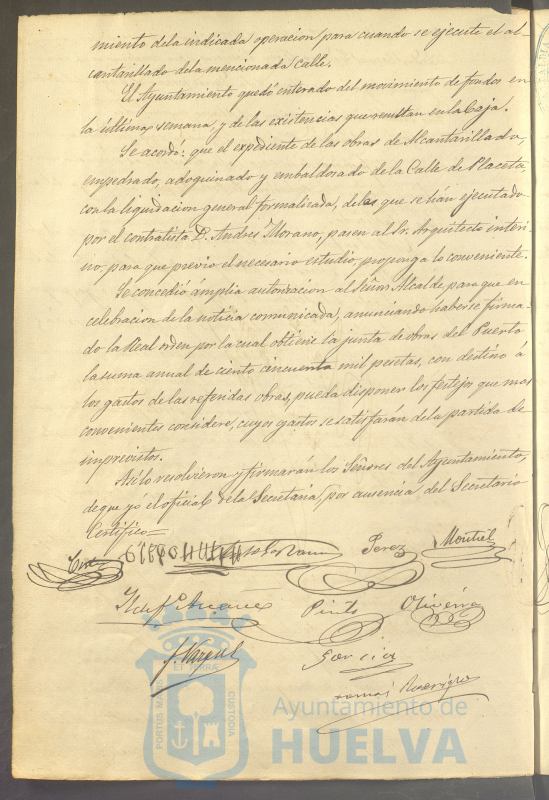 miento dela indicada operacion para cuando se ejecute el al-
cantarillado dela mencionada calle.
El Ayuntamiento quedó enterado del movimiento de fondos en
la última semana, y de las existencias que resultan en la Caja.
Se acordó: que el expediente de las obras de Alcantarillado,
empedrado, adoquinado y embaldosado de la Calle de Placeta,
con la liquidacion general formalizada, delas que se hán ejecutado
por el contratista D. Andres Morano, pasen al Sr. Arquitecto interi-
no, para que previo el necesario estudio, proponga lo conveniente.
Se concedió amplia autorizacion al Señor Alcalde para que en
celebracion de la noticia comunicada, anunciando haberse firma-
do la Real orden por la cual obtiene la junta de obras del Puerto
la suma anual de ciento cincuenta mil pesetas, con destino á
los gastos de las referidas obras, pueda disponer los festejos que mas
convenientes considere, cuyos gastos se satisfarán dela partida de
imprevistos.
Asi lo resolvieron y firmarán los Señores del Ayuntamiento,
de que yó el oficial dela Secretaria, por ausencia del Secretario
Certifico=
Perez Montiel
Pinto Oliveira
Garcia
PORTUS MARIS ET TERRÆ CUSTODIA
Ayuntamiento de
HUELVA